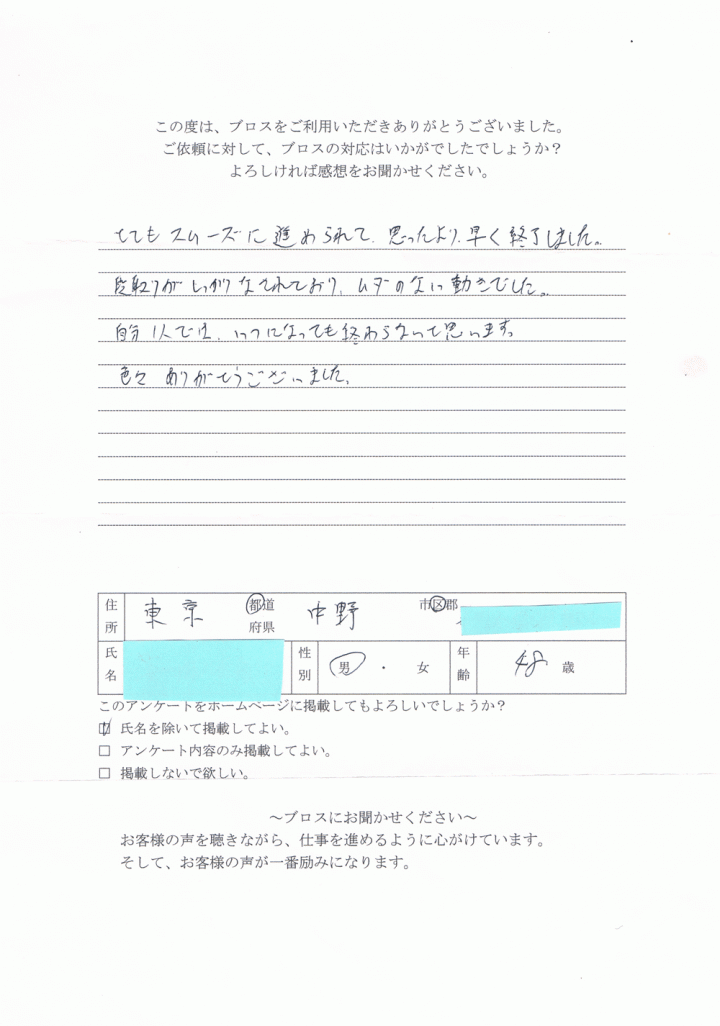 この度は、ブロスをご利用いただきありがとうございました。
ご依頼に対して、ブロスの対応はいかがでしたでしょうか？
よろしければ感想をお聞かせください。
とてもスムーズに進められて、思ったより早く終了しました。
段取りがしっかりなされており、ムダのない動きでした。
自分1人では、いつになっても終わらないと思います。
色々ありがとうございました。
住所 東京 都道府県 中野 市区郡
氏名 性別 男・女 年齢 48 歳
このアンケートをホームページに掲載してもよろしいでしょうか？
☑ 氏名を除いて掲載してよい。
□ アンケート内容のみ掲載してよい。
□ 掲載しないで欲しい。
～ブロスにお聞かせください～
お客様の声を聴きながら、仕事を進めるように心がけています。
そして、お客様の声が一番励みになります。